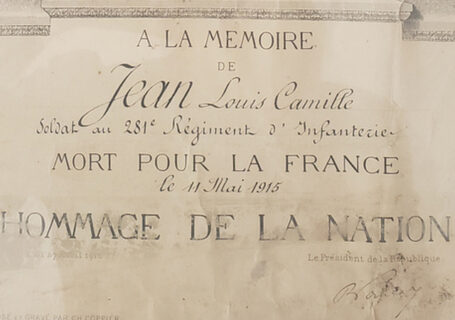 A LA MEMOIRE
DE
Jean Louis Camille
Soldat au 281e Régiment d'Infanterie
MORT POUR LA FRANCE
le 11 Mai 1915
HOMMAGE DE LA NATION
Le Président de la République
GRAVÉ PAR CH. COPPIER